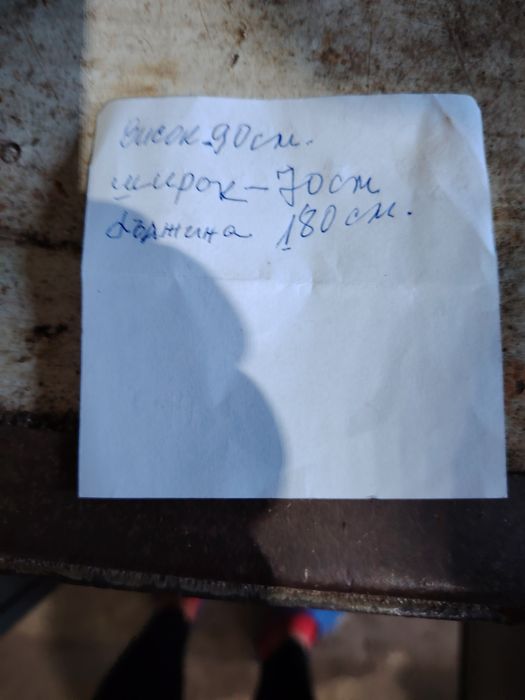 висок-90см.
широк-70cm
дължина 180см.